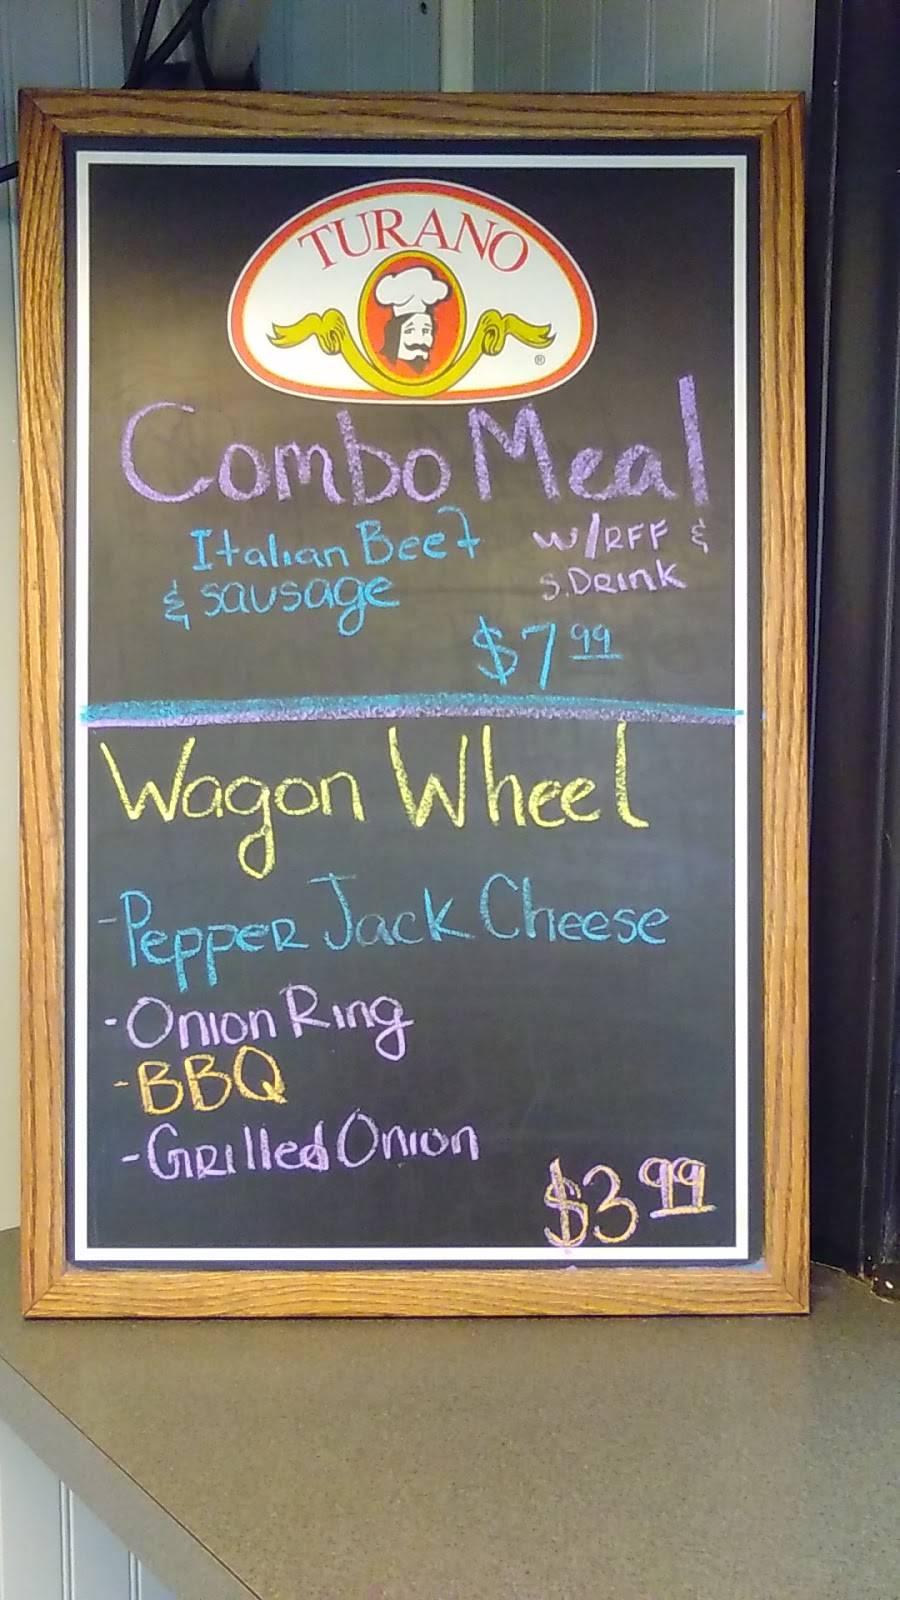 TURANO
®
Combo Meal
Italian Beef w/RFF &
& sausage S.Drink
$7 99
Wagon Wheel
-Pepper Jack Cheese
-Onion Ring
-BBQ
-Grilled Onion
$3 99